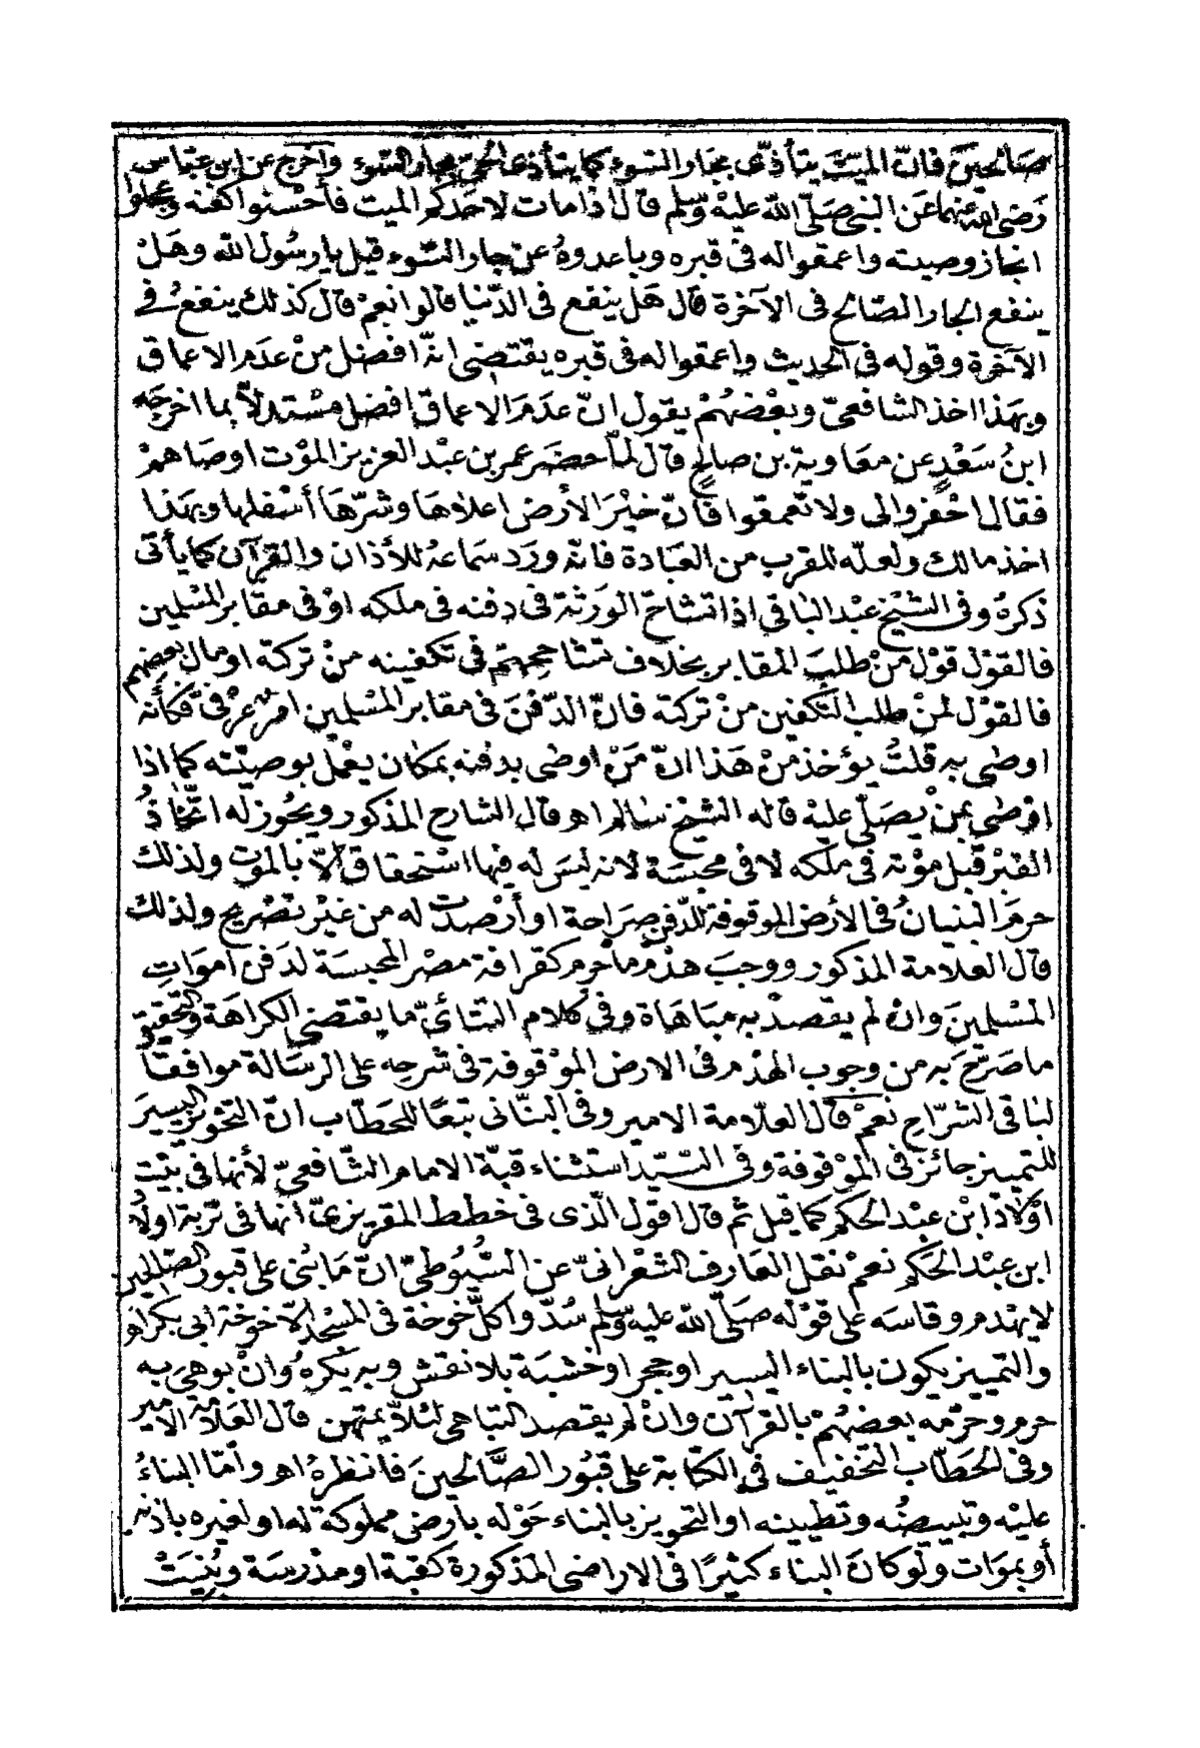 صَالحِينَ فَانّ الميّتَ يتأذّى بجَار السّوءِ كما يتأذى الحيّ بجار السّوء وأخرج عن ابن عبّاس
رَضى الله عنهما عَن النبى صَلّى الله عليْه وسّلم قال اذا مات لاحَدكم الميت فأحْسنوا كفنه وعجلوا
انجاز وصيته واعمقوا له فى قبره وباعدوهُ عنْ جار السّوء قيل يا رسُول الله وهَلْ
ينفع الجار الصّالح فى الآخرة قال هَل ينفع فى الدّنيا قالوا نعمْ قال كذلك ينفعُ فى
الآخرة وقوله فى الحديث واعمقوا له فى قبره يقتضى انهّ افضل منْ عدَم الاعماق
وبهَذا اخذ الشافعىّ وبعْضهُمْ يقول انّ عدَمَ الاعماق افضل مسْتدلاّ بما اخرجَه
ابنُ سَعْدٍ عن معَاوية بن صالحٍ قال لمّا حضَر عمر بن عبْد العزيز الموْت اوصَاهمْ
فقال احْفروا لى ولا تعمقوا فانّ خيْرَ الأرْض اعلاهَا وشرّهَا أسْفلها وبهَذا
اخذ مالك ولعله للقرب من العبَادة فانه ورَد سَماعهُ للأذان والقرآن كما يأتى
ذكرهُ وفى الشيْخ عبْد الباقى اذا تشاحّ الوَرَثة فى دفنه فى ملكه اوْ فى مقابر المسْلمين
فالقوْل قوْل منْ طلبَ المقابر بخلاف تشاححِهمْ فى تكفينه منْ تركة او مال بعضهم
فالقوْل لمنْ طلب التكفين منْ تركته فانّ الدّفنَ فى مقابر المسْلمين امرٌ عرْفىّ فكأنه
اوصى به قلتُ يؤخذ منْ هَذا انّ مَنْ اوصى بدفنه بمكان يعْمَل بوصيّته كما اذا
اوْصى بمنْ يصَلّى عليْه قاله الشيْخ سَالم اهـ وقال الشارح المذكور ويجُوز له اتّخاذُ
القبْر قبل موْته فى ملكه لا فى محبسَة لانه ليسَ له فيها اسْتحقاق الاّ بالموْت ولذلك
حرمَ البنيانُ فى الأرض الموقوفة للدّفن صرَاحة او أرْصدت له من غيْر تصْريح ولذلك
قال العلامة المذكور ووجبَ هدْم ما حُرم كقرافة مصْر المحبسَة لدَفن أموَاتِ
المسْلمينَ وانْ لم يقصدْ به مبَاهَاة وفى كلام التتائىّ ما يقتضى الكراهَة والتّحقيق
ما صَرّحَ به من وجوب الهدْم فى الارض الموْقوفة فى شرحِه على الرسَالة موافقا
لباقى الشرّاحِ نعمْ قال العلاّمة الامير وفى البنّانى تبعًا للحَطّاب انّ التحْويز اليسيرَ
للتمييز جائز فى الموْقوفة وفى السّيّد استثناء قبّة الامام الشّافعىّ لأنها فى بيْت
اوْلاد ابْن عبْد الحكم كما قيل ثم قال اقول الّذى فى خطط المقريزىّ انها فى تربة اولاد
ابن عبْد الحَكم نعمْ نقل العَارف الشعْرانىّ عن السّيُوطىّ انّ مَا بُنى على قبور الصّالحين
لا يهْدم وقاسَه على قوْله صَلّى الله عليه وسّلم سُدّوا كلّ خوخة فى المسْجد الاّ خوخة ابى بكر اهـ
والتمييز يكون بالبناء اليسير او حجر او خشبَة بلا نقش وبه يكرهُ وانْ بوهىَ به
حرم وحرّمه بعضهُمْ بالقرآن وانْ لم يقصد التباهى لئلاّ يمتهن قال العَلاّمة الامير
وفى الحَطّاب التخفيف فى الكتابة على قبُور الصّالحينَ فانظرهُ اهـ وأمّا البناءُ
عليْه وتبييضُه وتطيينه او التحويز بالبناء حَوْله بأرضٍ مملوكة له او لغيره باذنه
أو بموَات ولوْ كانَ البناء كثيرًا فى الاراضى المذكورة كقبة او مدْرسَة وبُنيَتْ